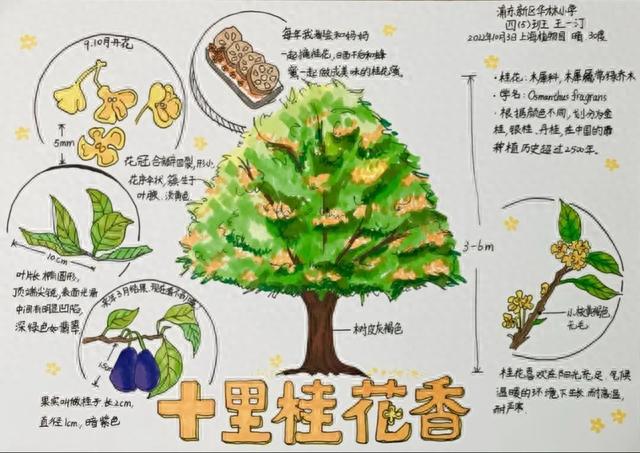 浦东新区华林小学
四(5)班 王一汀
2022年10月3日上海植物园 晴 30度
9.10月开花
5mm
花冠合瓣四裂,形小.
花序伞状,簇生于
叶腋.淡黄色.
每年我都会和妈妈
一起摘桂花,
一起做成美味的桂花藕。
·桂花:木犀科,木犀属常绿乔木
·学名:Osmanthus fragrans
·根据颜色不同,划分为金
桂,银桂,丹桂,在中国的
种植历史超过2500年。
10cm
叶片长椭圆形,
顶端尖锐,表面光滑
中间有明显凹陷,
深绿色如翡翠.
来年3月结果,现在看不到哦!
1.5cm
果实叫做桂子.长2cm,
直径1cm,暗紫色
树皮灰褐色
3-6m
小枝黄褐色
无毛.
桂花喜欢在阳光充足,气候
温暖的环境下生长,耐高温,
耐严寒.
十里桂花香